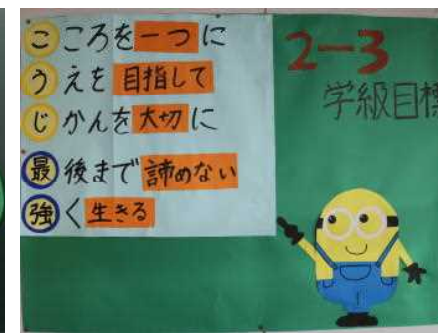 こころを一つに
うえを目指して
じかんを大切に
最後まで諦めない
強く生きる
2-3
学級目標